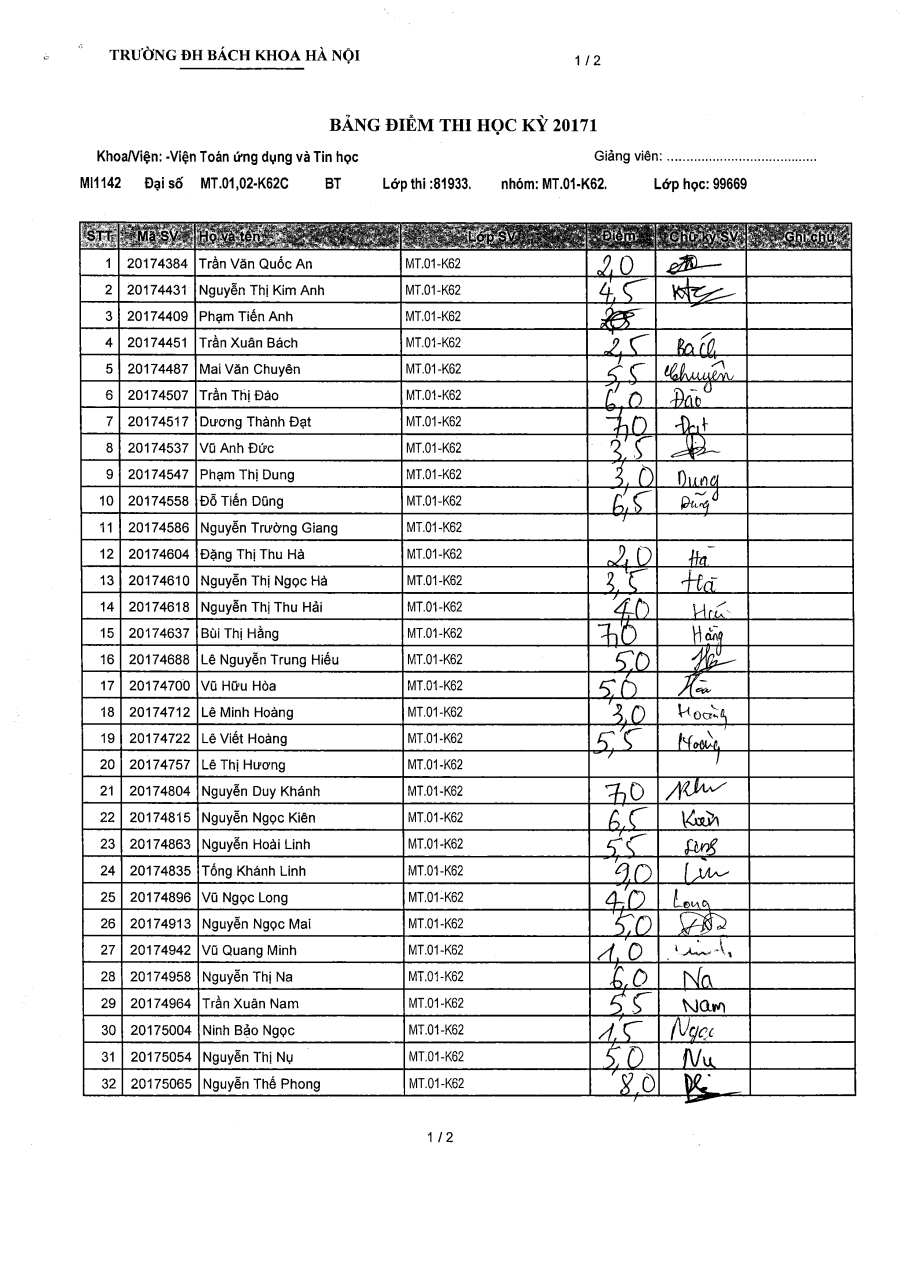 TRƯỜNG ĐH BÁCH KHOA HÀ NỘI
1 / 2
BẢNG ĐIỂM THI HỌC KỲ 20171
Khoa/Viện: -Viện Toán ứng dụng và Tin học Giảng viên: ........................................
MI1142 Đại số MT.01,02-K62C BT Lớp thi :81933. nhóm: MT.01-K62. Lớp học: 99669
STT Mã SV Họ và tên Lớp SV Điểm Chữ ký SV Ghi chú
1 20174384 Trần Văn Quốc An MT.01-K62 2,0
2 20174431 Nguyễn Thị Kim Anh MT.01-K62 4,5
3 20174409 Phạm Tiến Anh MT.01-K62
4 20174451 Trần Xuân Bách MT.01-K62 2,5 Bách
5 20174487 Mai Văn Chuyên MT.01-K62 5,5 Chuyên
6 20174507 Trần Thị Đào MT.01-K62 6,0 Đào
7 20174517 Dương Thành Đạt MT.01-K62 7,0 Đạt
8 20174537 Vũ Anh Đức MT.01-K62 3,5
9 20174547 Phạm Thị Dung MT.01-K62 3,0 Dung
10 20174558 Đỗ Tiến Dũng MT.01-K62 6,5 Dũng
11 20174586 Nguyễn Trường Giang MT.01-K62
12 20174604 Đặng Thị Thu Hà MT.01-K62 2,0 Hà
13 20174610 Nguyễn Thị Ngọc Hà MT.01-K62 3,5 Hà
14 20174618 Nguyễn Thị Thu Hải MT.01-K62 4,0
15 20174637 Bùi Thị Hằng MT.01-K62 7,0 Hằng
16 20174688 Lê Nguyễn Trung Hiếu MT.01-K62 5,0
17 20174700 Vũ Hữu Hòa MT.01-K62 5,0 Hòa
18 20174712 Lê Minh Hoàng MT.01-K62 3,0 Hoàng
19 20174722 Lê Viết Hoàng MT.01-K62 5,5 Hoàng
20 20174757 Lê Thị Hương MT.01-K62
21 20174804 Nguyễn Duy Khánh MT.01-K62 7,0
22 20174815 Nguyễn Ngọc Kiên MT.01-K62 6,5 Kiên
23 20174863 Nguyễn Hoài Linh MT.01-K62 5,5
24 20174835 Tống Khánh Linh MT.01-K62 9,0
25 20174896 Vũ Ngọc Long MT.01-K62 4,0 Long
26 20174913 Nguyễn Ngọc Mai MT.01-K62 5,0
27 20174942 Vũ Quang Minh MT.01-K62 1,0
28 20174958 Nguyễn Thị Na MT.01-K62 6,0 Na
29 20174964 Trần Xuân Nam MT.01-K62 5,5 Nam
30 20175004 Ninh Bảo Ngọc MT.01-K62 1,5 Ngọc
31 20175054 Nguyễn Thị Nụ MT.01-K62 5,0 Nụ
32 20175065 Nguyễn Thế Phong MT.01-K62 8,0
1 / 2